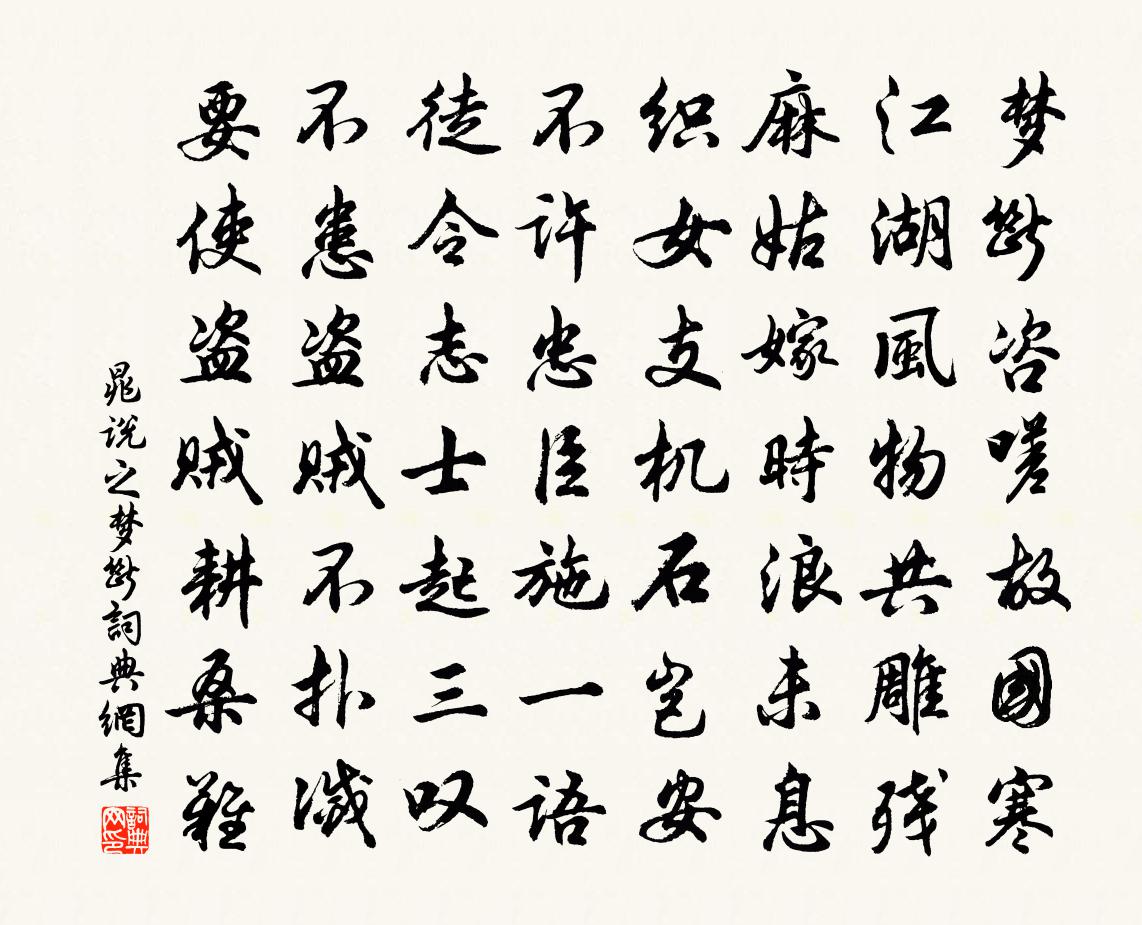 梦断咨嗟故國寒
江湖風物共雕残
麻姑嫁時浪未息
织女支机石岂安
不许忠臣施一语
徒令志士起三叹
不患盗贼不扑滅
要使盗贼耕桑難
晁说之梦断詞典網集
詞典网印